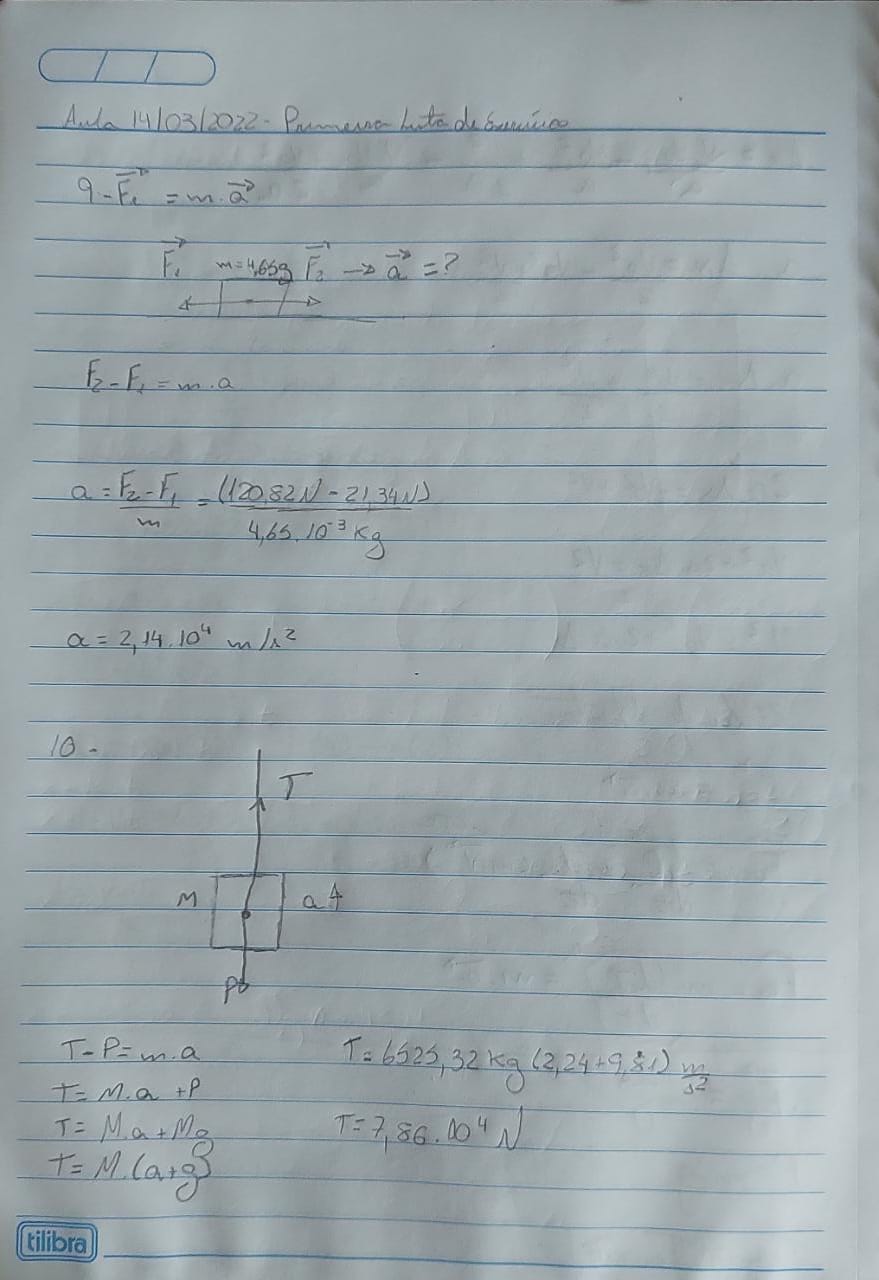 Aula 14/03/2022 - Primeira Lista de Exercícios
9 - F₁ = m.a
F₁ m=4,65g F₂ → a = ?
F₂ - F₁ = m.a
a = F₂ - F₁ / m = (120,82N - 21,34N) / 4,65.10⁻³ kg
a = 2,14.10⁴ m/s²
10 -
T
M a
P
T - P = m.a
T = M.a + P
T = M.a + Mg
T = M.(a+g)
T = 6525,32 kg (2,24 + 9,81) m/s²
T = 7,86.10⁴ N
tilibra